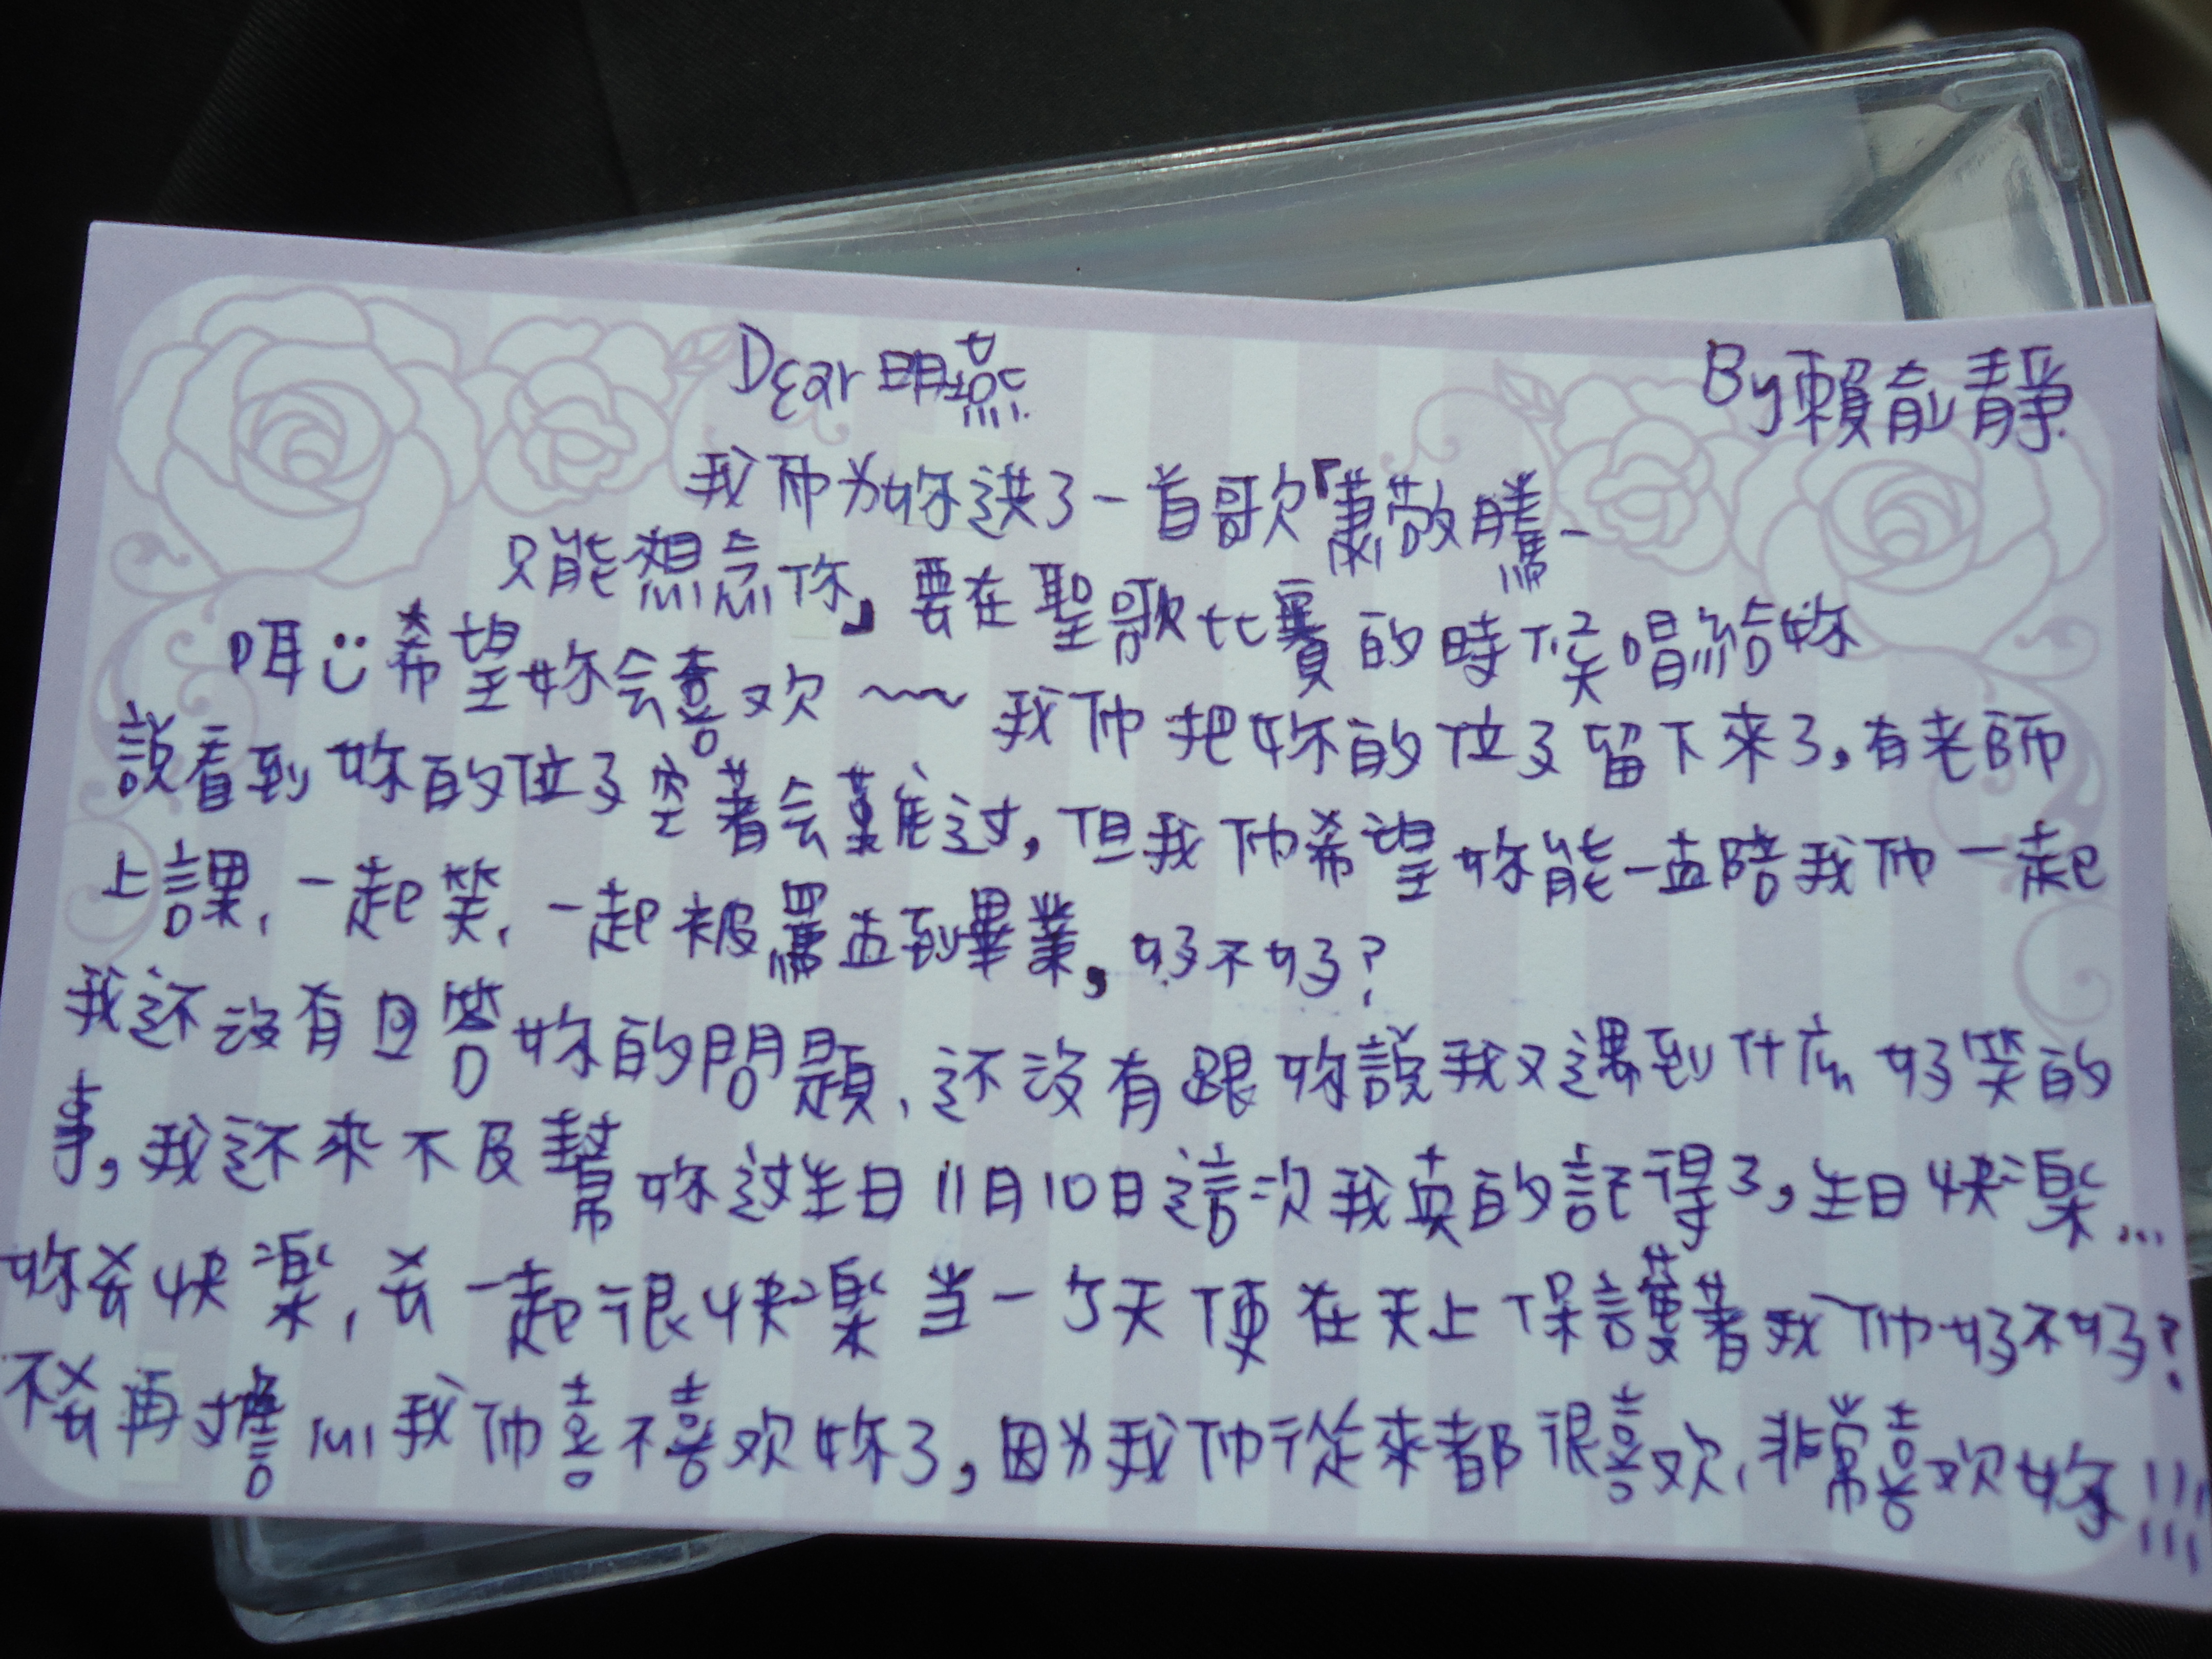 Dear 明燕
By 賴俞靜
我们为妳送了一首歌「蕭敬騰-
只能想念你」要在聖歌比賽的時候唱給妳
唷希望妳会喜欢~~ 我们把妳的位子留下來了,有老師
說看到妳的位子空著会難过,但我们希望妳能一直陪我们一起
上課、一起笑、一起被罵直到畢業,好不好?
我还沒有回答妳的問題、还沒有跟妳說我又遇到什麼好笑的
事,我还來不及幫妳过生日11月10日這次我真的記得了,生日快樂...
妳要快樂,要一起很快樂当一个天使在天上保護著我们好不好?
不要再擔心我们喜不喜欢妳了,因为我们從來都很喜欢、非常喜欢妳!!!